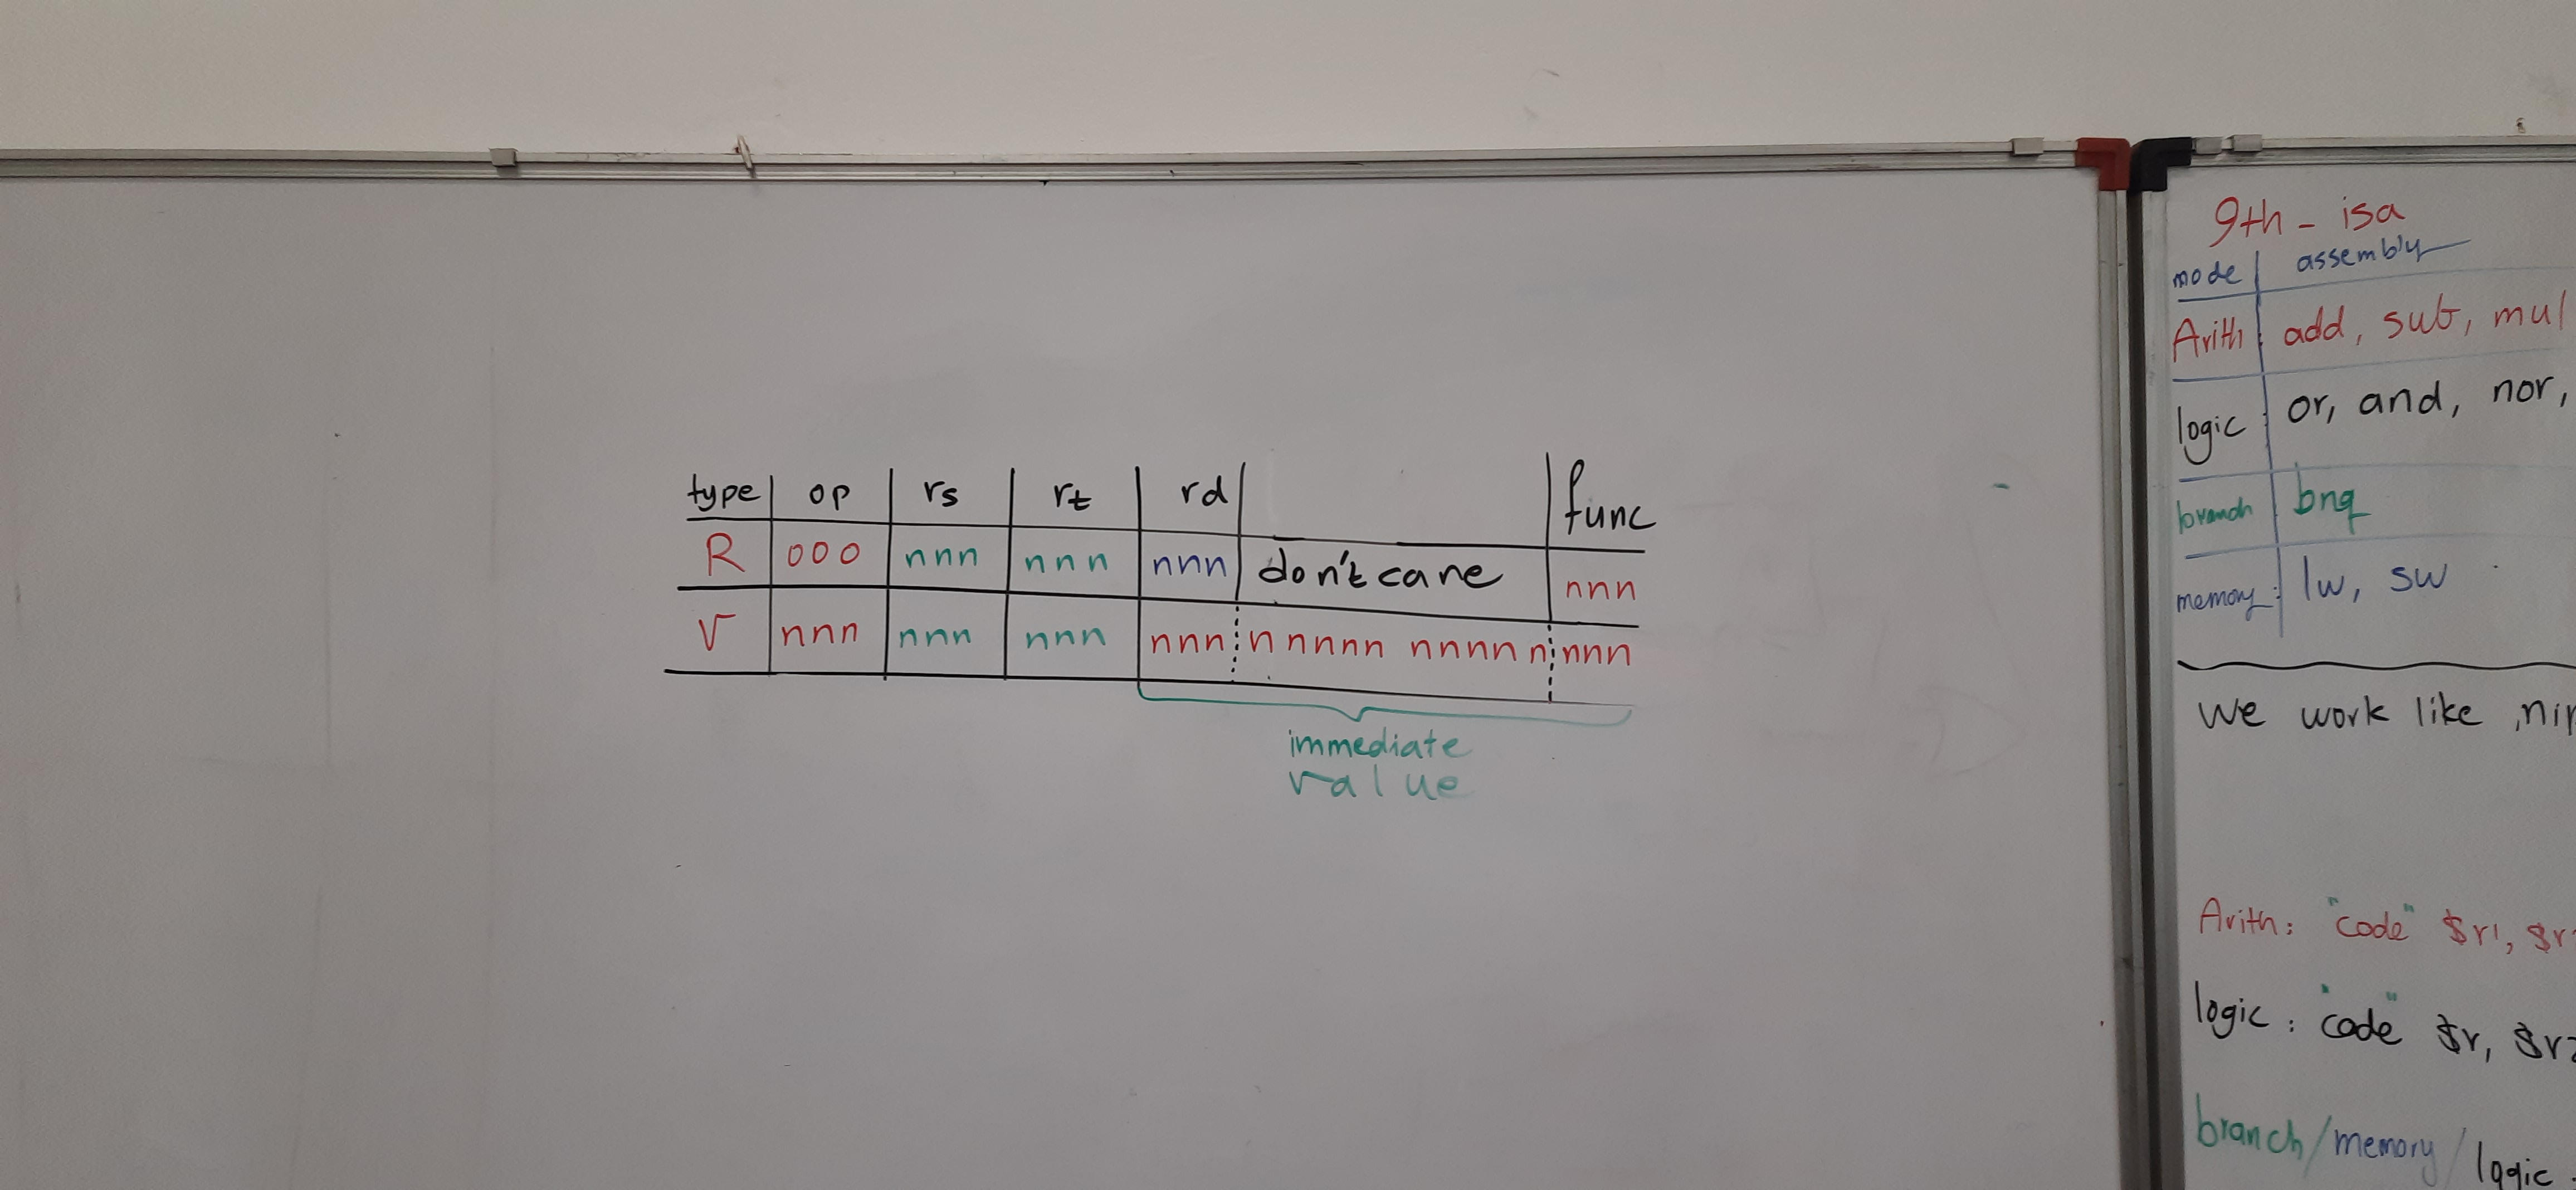 type op rs rt rd func
R 000 nnn nnn nnn don't care nnn
V nnn nnn nnn nnn n nnnn nnnn n nnn
immediate
value
9th - isa
mode assembly
Arith: add, sub, mul
logic: or, and, nor,
branch bnq
memory: lw, sw
We work like
Arith: "code" $r1, $r
logic: "code" $r, $r2
branch/memory/logic